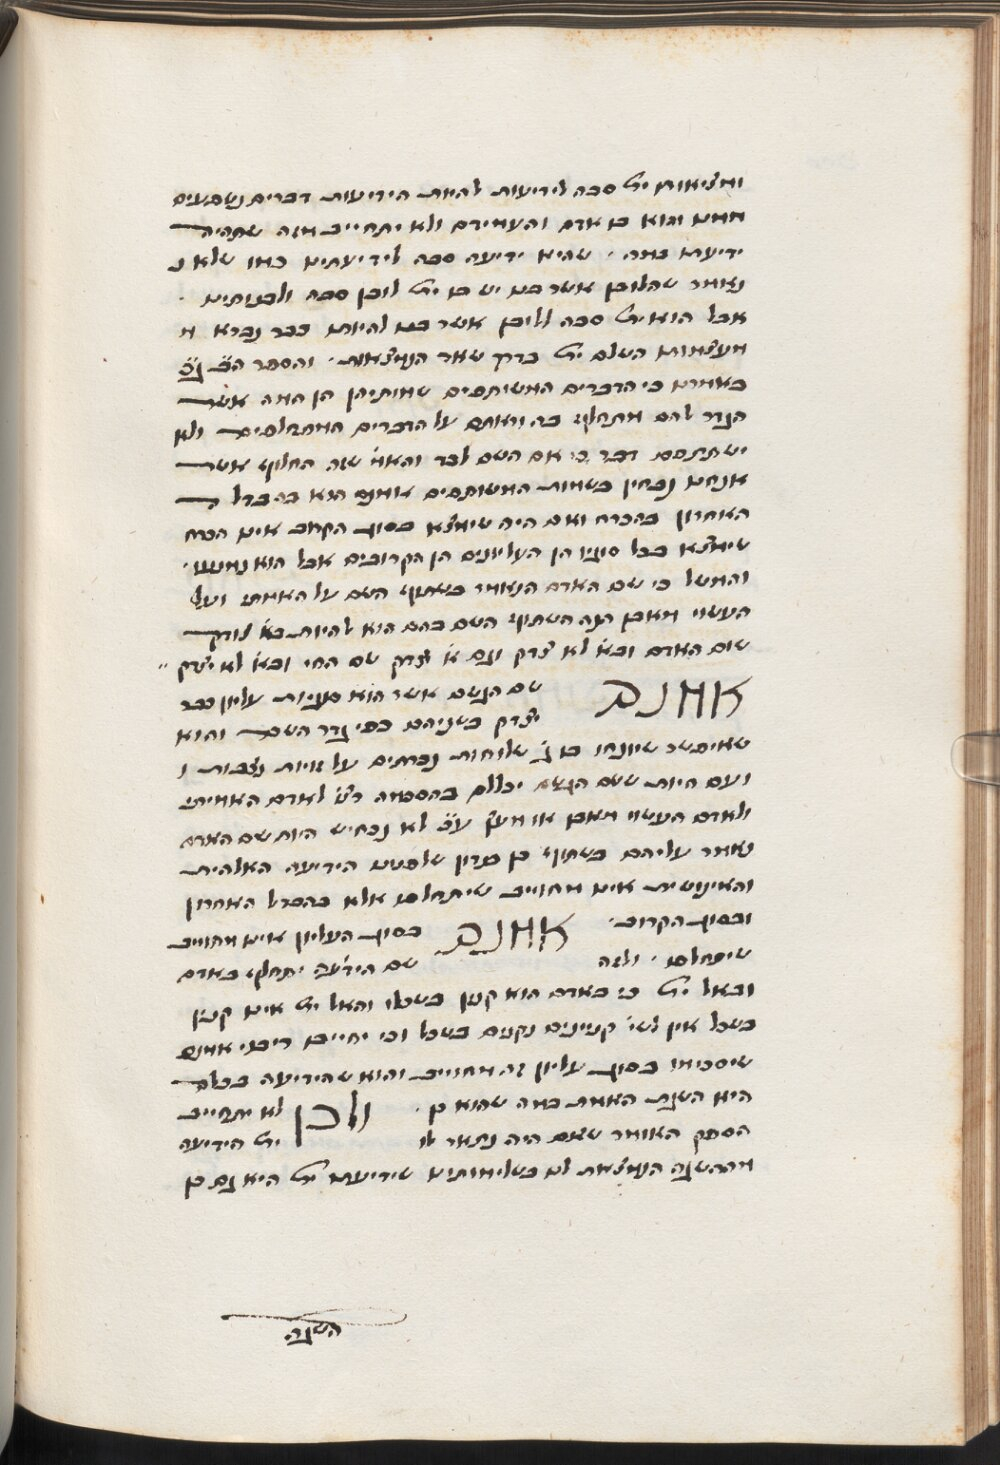 ומציאותו ית' סבה לידיעות להיות הידיעות דברים נשפעים
ממנו והוא בן אדם והעמידם ולא יתחייב מזה שתהיה
ידיעתו במה שהיא ידיעה סבה לידיעתינו כמו שלא נ
נאמר שהלובן אשר בנו יש בו ית' לובן סבה ולבנותינו
אבל הוא ית' סבה ללובן אשר בנו להיות כבר נברא מ
מעצמותו השלם ית' בדרך שאר הנמצאות והספר הב'
באמרנו כי הדברים המשותפים שמותיהן הן המה אשר
הגדר להם מתחלף בה ויאותם על הדברים המתחלפים ולא
ישתתפם דבר כי אם השם לבד והאמ' שזה החלוף אשר
אנחנו נבחין בשמות המשותפים אמנם הוא בהבדל
האחרון בהכרח ואם היה שימצא בסוג הקרוב אינו הכרח
שימצא בכל סוגיו הן העליונים הן הקרובים אבל הוא נמנע
והמשל כי שם האדם הנאמר בשתוף השם על האמתי ועל
העשוי מאבן הנה השתוף השם בהם הוא להיות בא' צודק
שום האדם ובא' לא צדק וגם א' יצדק שם החי ובא' לא יצדק
אמנם שם הגשם אשר הוא סוגיות עליון כבר
יצדק בשניהם כפי גדר השם והוא
שאיפשר שיונחו בו ג' שלוחות נכרתים על זויות נצבות ו
ועם היות ששם הגשם יכללם בהסכמה ר"ל לאדם האמיתי
ולאדם העשוי מאבן או מעץ עכ"ז לא נכחיש היות שם האדם
נאמר עליהם בשתוף כן נדון שלפנינו הידיעה האלהית
והאינושית אינו מחוייב שיתחלפו אלא בהבדל האחרון
ובסוג הקרוב אמנם בסוג העליון אינו מחוייב
שיתחלפו ולזה שם הידיעה יתחלף באדם
ובאל ית' כי באדם הוא קנין בשכלו והאל ית' אינו קנין
בשכל אין לשי' קניינים נקנים בשכל וכי יחייבו ריבוי אמנם
שיסכימו בסוג עליון זה מחוייב והוא שהידיעה בכלל
היא השגת האמת במה שהוא כן ולכן לא יתחייב
הספק האומר שאם היה נתאר לו ית' הידיעה
מההשגה הנמצאת לנו בשלימותינו שידיעתו ית' היא גם כן
השגה